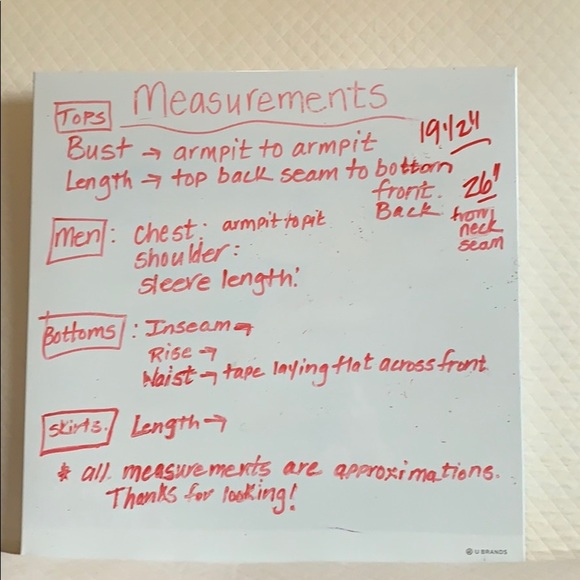 Measurements
Tops
19 1/2"
Bust → armpit to armpit
Length → top back seam to bottom
front.
Back
26"
from
neck
seam
Men : Chest: armpit to pit
shoulder:
sleeve length:
Bottoms : Inseam →
Rise →
Waist → tape laying flat across front
Skirts. Length →
* all measurements are approximations.
Thanks for looking!
U BRANDS